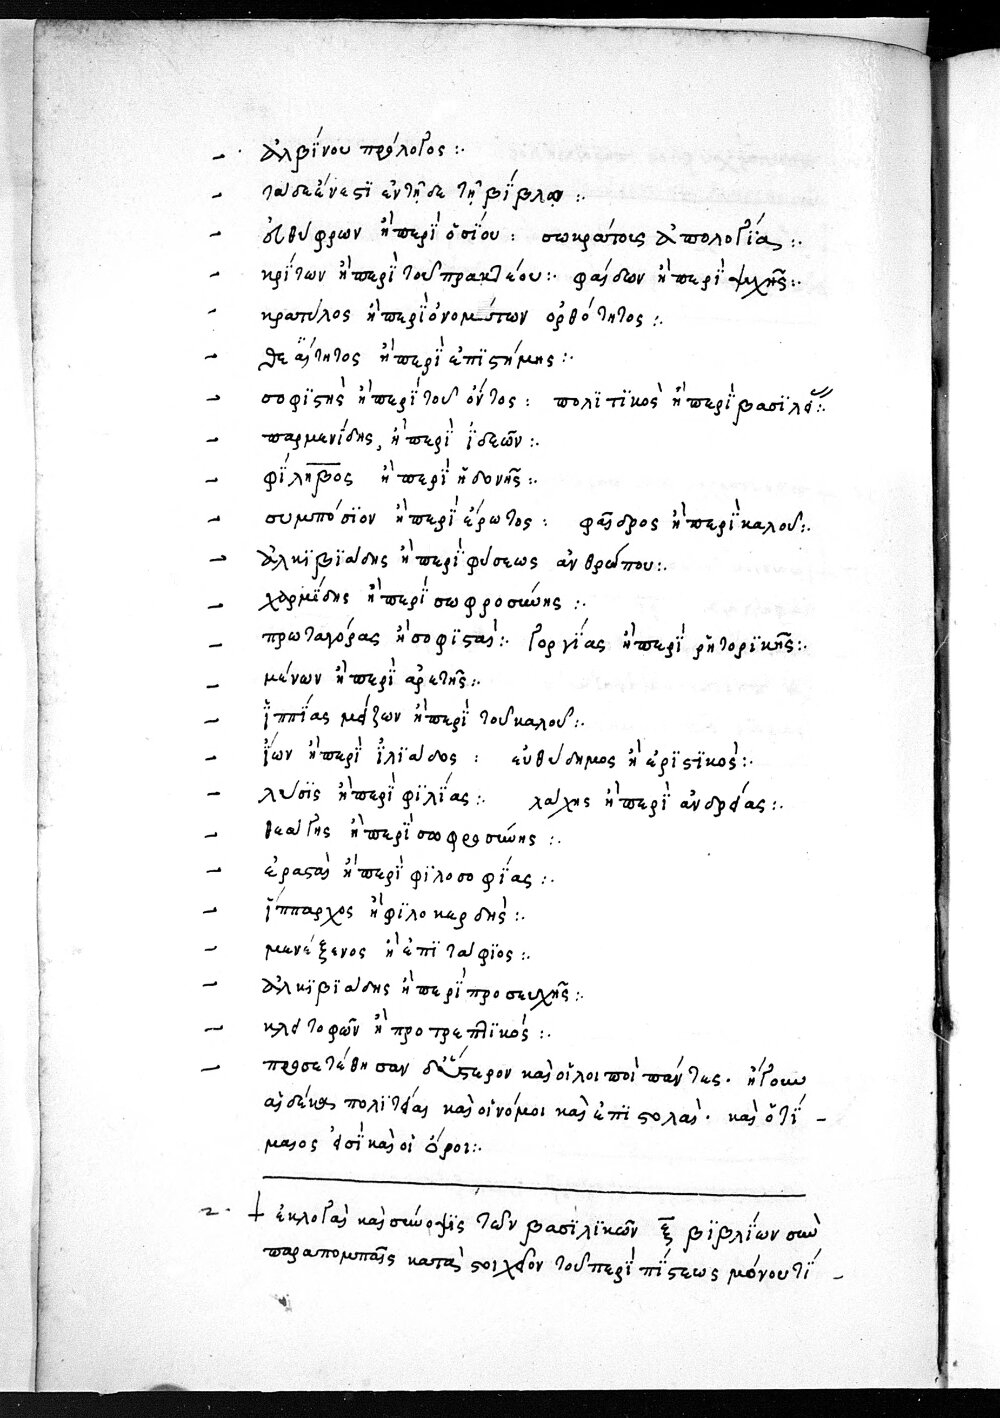 – Ἀλβίνου πρόλογος :·
– τάδε ἔνεστι ἐν τῇδε τῇ βίβλῳ :·
– εὐθύφρων ἢ περὶ ὁσίου : σωκράτους ἀπολογία :·
– κρίτων ἢ περὶ τοῦ πρακτέου :· φαίδων ἢ περὶ ψυχῆς :·
– κρατύλος ἢ περὶ ὀνομάτων ὀρθότητος :·
– θεαίτητος ἢ περὶ ἐπιστήμης :·
– σοφιστὴς ἢ περὶ τοῦ ὄντος : πολιτικὸς ἢ περὶ βασιλεί :·
– παρμενίδης, ἢ περὶ ἰδεῶν :·
– φίληβος ἢ περὶ ἡδονῆς :·
– συμπόσιον ἢ περὶ ἔρωτος : φαῖδρος ἢ περὶ καλοῦ :·
– Ἀλκιβιάδης ἢ περὶ φύσεως ἀνθρώπου :·
– χαρμίδης ἢ περὶ σωφροσύνης :·
– πρωταγόρας ἢ σοφισταὶ :· γοργίας ἢ περὶ ῥητορικῆς :·
– μένων ἢ περὶ ἀρετῆς :·
– ἱππίας μείζων ἢ περὶ τοῦ καλοῦ :·
– ἴων ἢ περὶ ἰλιάδος : εὐθύδημος ἢ ἐριστικὸς :·
– λύσις ἢ περὶ φιλίας :· λάχης ἢ περὶ ἀνδρείας :·
– θεάγης ἢ περὶ σωφροσύνης :·
– ἐρασταὶ ἢ περὶ φιλοσοφίας :·
– ἵππαρχος ἢ φιλοκερδὴς :·
– μενέξενος ἢ ἐπιτάφιος :·
– Ἀλκιβιάδης ἢ περὶ προσευχῆς :·
– κλειτοφῶν ἢ προτρεπτικὸς :·
– προσετέθησαν δὲ ὕστερον καὶ οἱ λοιποὶ πάντες. ἤγουν
αἱ δέκα πολιτεῖαι καὶ οἱ νόμοι καὶ ἐπιστολαὶ. καὶ ὁ τί–
μαιος εἰσὶ καὶ οἱ ὅροι :·
2. † ἐκλογαὶ καὶ σύνοψις τῶν βασιλικῶν ξ βιβλίων σὺν
παραπομπαῖς κατὰ στοιχεῖον τοῦ περὶ πίστεως μόνου τί–